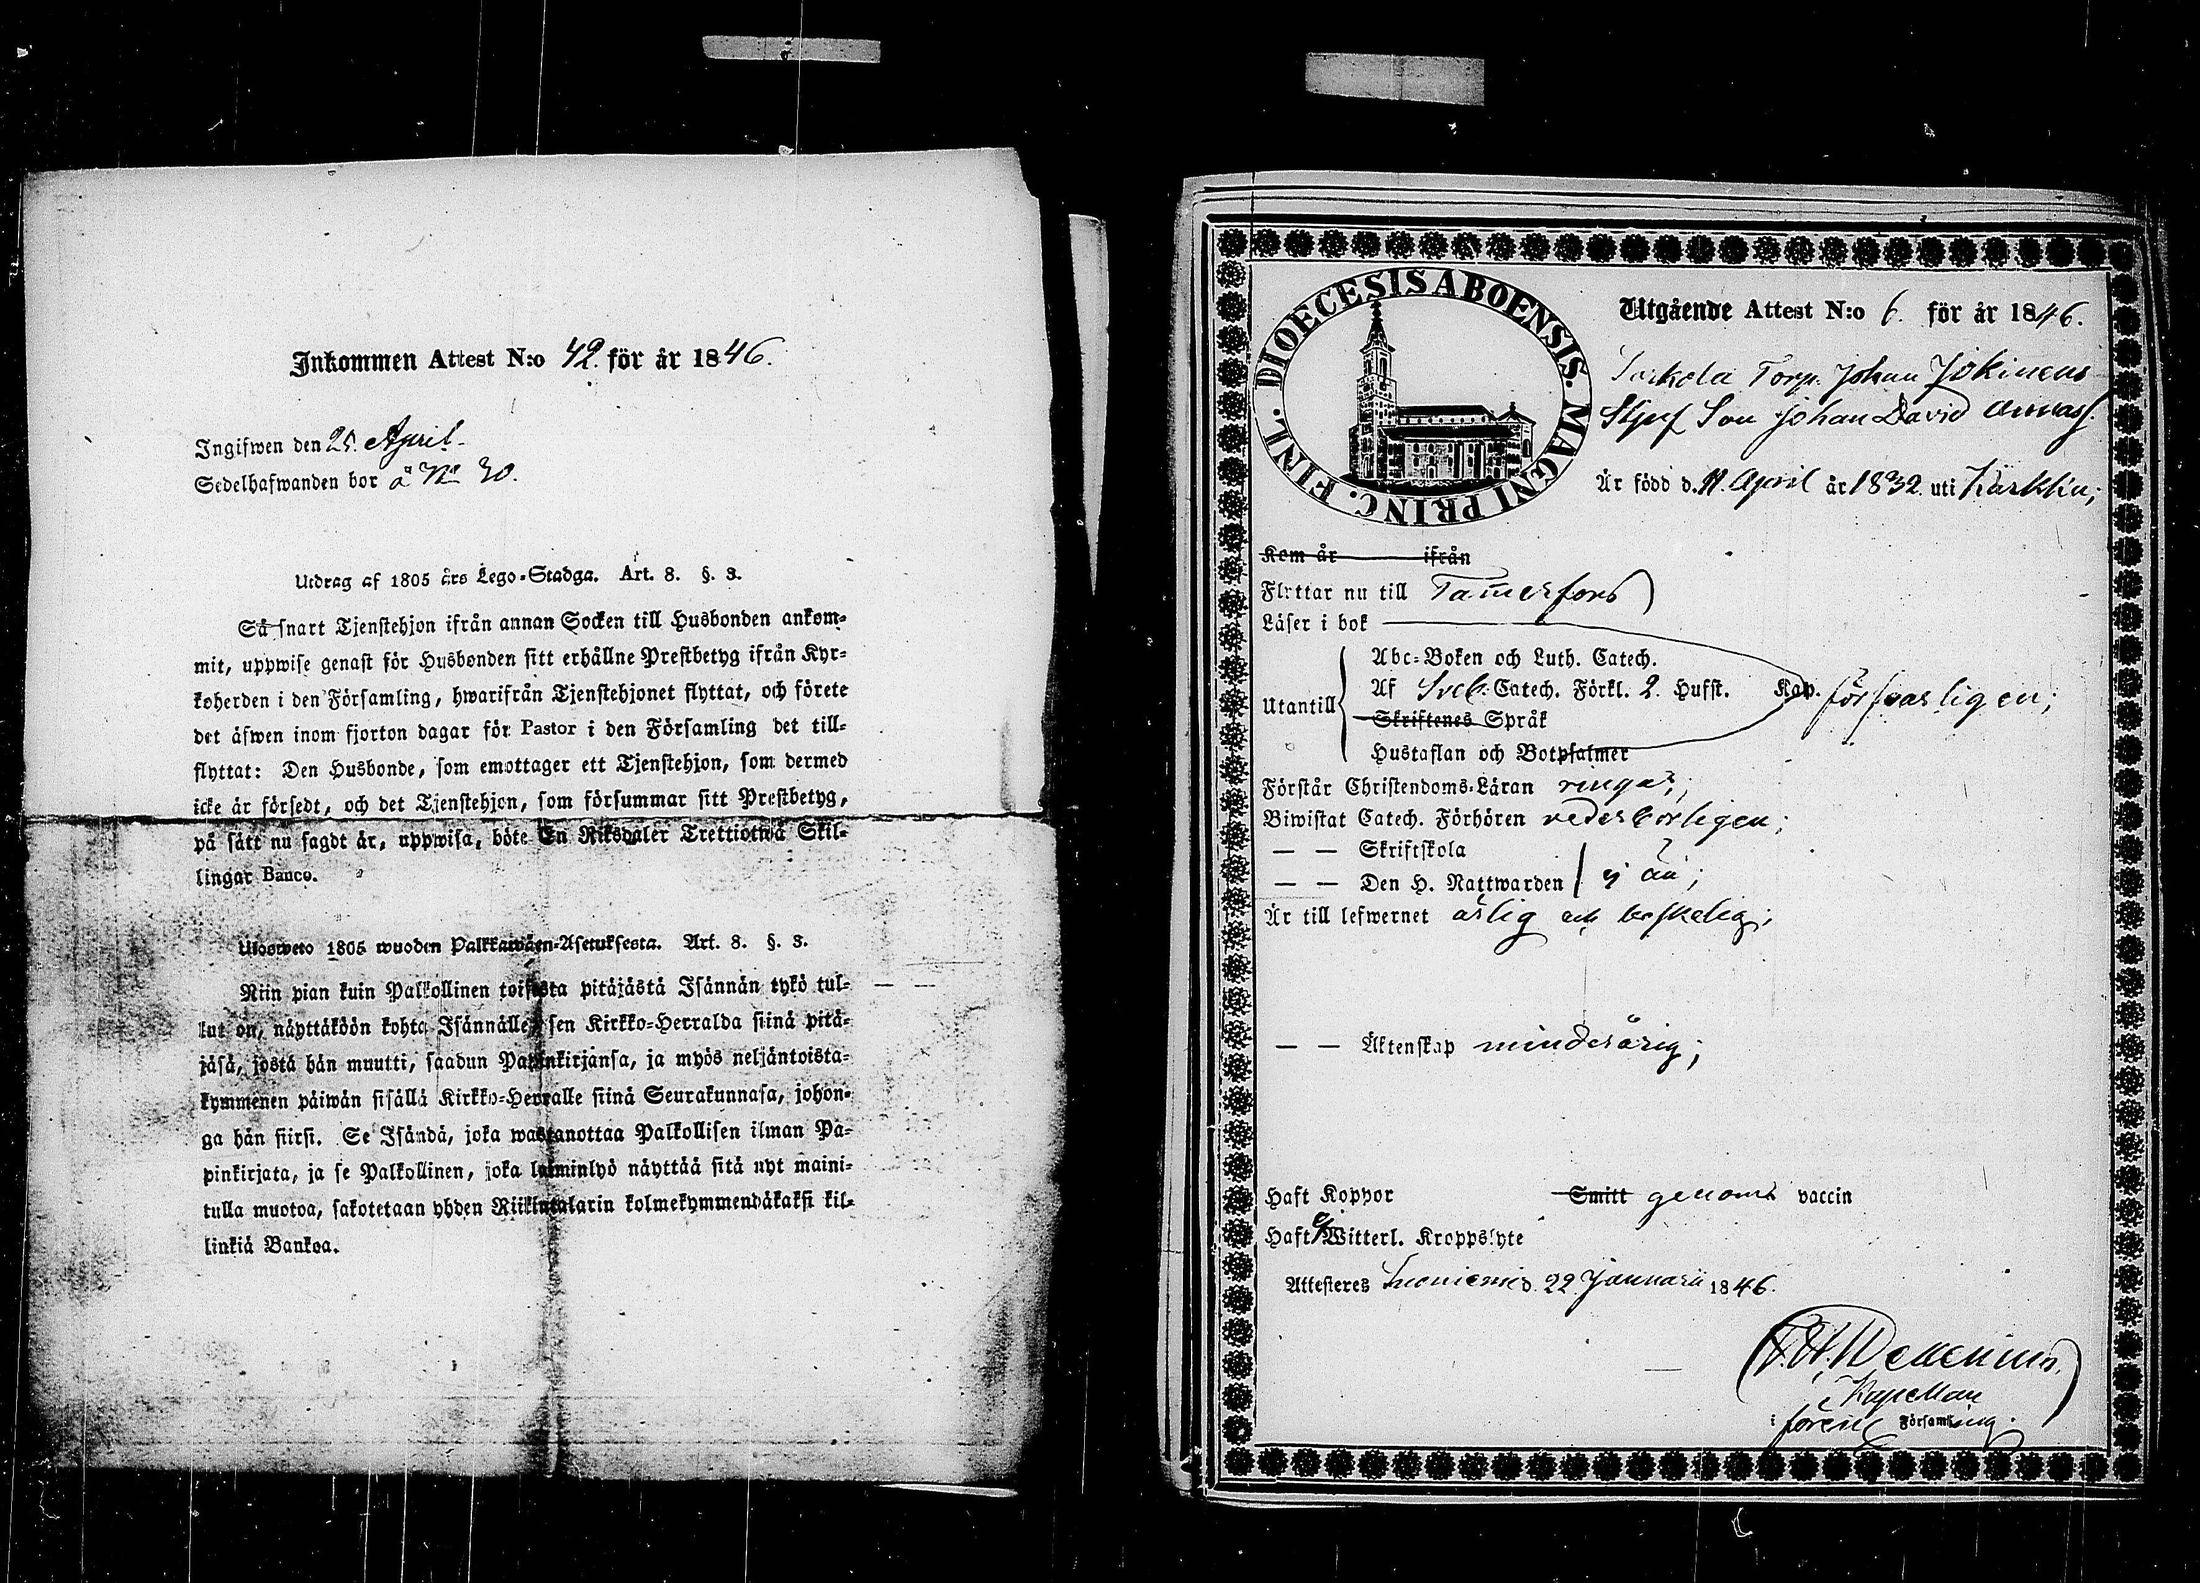 Inkommen Attest N:o 42. för år 1846.
Ingifwen den 25. April.
Sedelhafwanden bor å No 30.
Utdrag af 1805 års Lego-Stadga. Art. 8. §. 3.
Så snart Tjenstehjon ifrån annan Socken till Husbonden ankom-
mit, uppwise genast för Husbonden sitt erhållne Prestbetyg ifrån Kyr-
koherden i den Församling, hwarifrån Tjenstehjonet flyttat, och förete
det äfwen inom fjorton dagar för Pastor i den Församling det till-
flyttat: Den Husbonde, som emottager ett Tjenstehjon, som dermed
icke är försedt, och det Tjenstehjon, som försummar sitt Prestbetyg,
på sätt nu sagdt är, uppwisa, böte En Riksdaler Trettiotwå Skil-
lingar Banco.
Ulosweto 1805 wuoden Palkkawäen-Asetuksesta. Art. 8. §. 3.
Niin pian kuin Palkollinen toisesta pitäjästä Isännän tykö tul-
lut on, näyttäköön kohta Isännälle sen Kirkko-Herralda siinä pitä-
jäsä, jostä hän muutti, saadun Papinkirjansa, ja myös neljäntoista-
kymmenen päiwän sisällä Kirkko-Herralle siinä Seurakunnasa, johon-
ga hän siirsi. Se Isändä, joka wastanottaa Palkollisen ilman Pa-
pinkirjata, ja se Palkollinen, joka laiminlyö näyttää sitä nyt maini-
tulla muotoa, sakotetaan yhden Riikintalarin kolmekymmendäkaksi kil-
linkiä Bankoa.
DIOECESIS ABOENSIS. MAGNI PRINC. FINL.
Utgående Attest N:o 6. för år 1846.
Sarkola Torp. Johan Jokinens
Stjuf Son Johan David Annass.
Är född d. 11. April år 1832. uti Karkku;
Kom år ifrån
Flyttar nu till Tammerfors
Läser i bok
Abc-Boken och Luth. Catech.
Af Sveb. Catech. Förkl. 2. Hufst. Kap. försvarligen;
Utantill
Skriftenes Språk
Hustaflan och Botpsalmer
Förstår Christendoms-Läran ringa;
Biwistat Catech. Förhören vederbörligen;
— — Skriftskola
— — Den H. Nattwarden ej än;
Är till lefwernet ärlig och beskelig;
— — Äktenskap minderårig;
Haft Koppor Smitt genom vaccin
Haft ej Witterl. Kroppslyte
Attesteres Suoniemi d. 22. Januarii 1846.
Kapellan
i förend Församling.